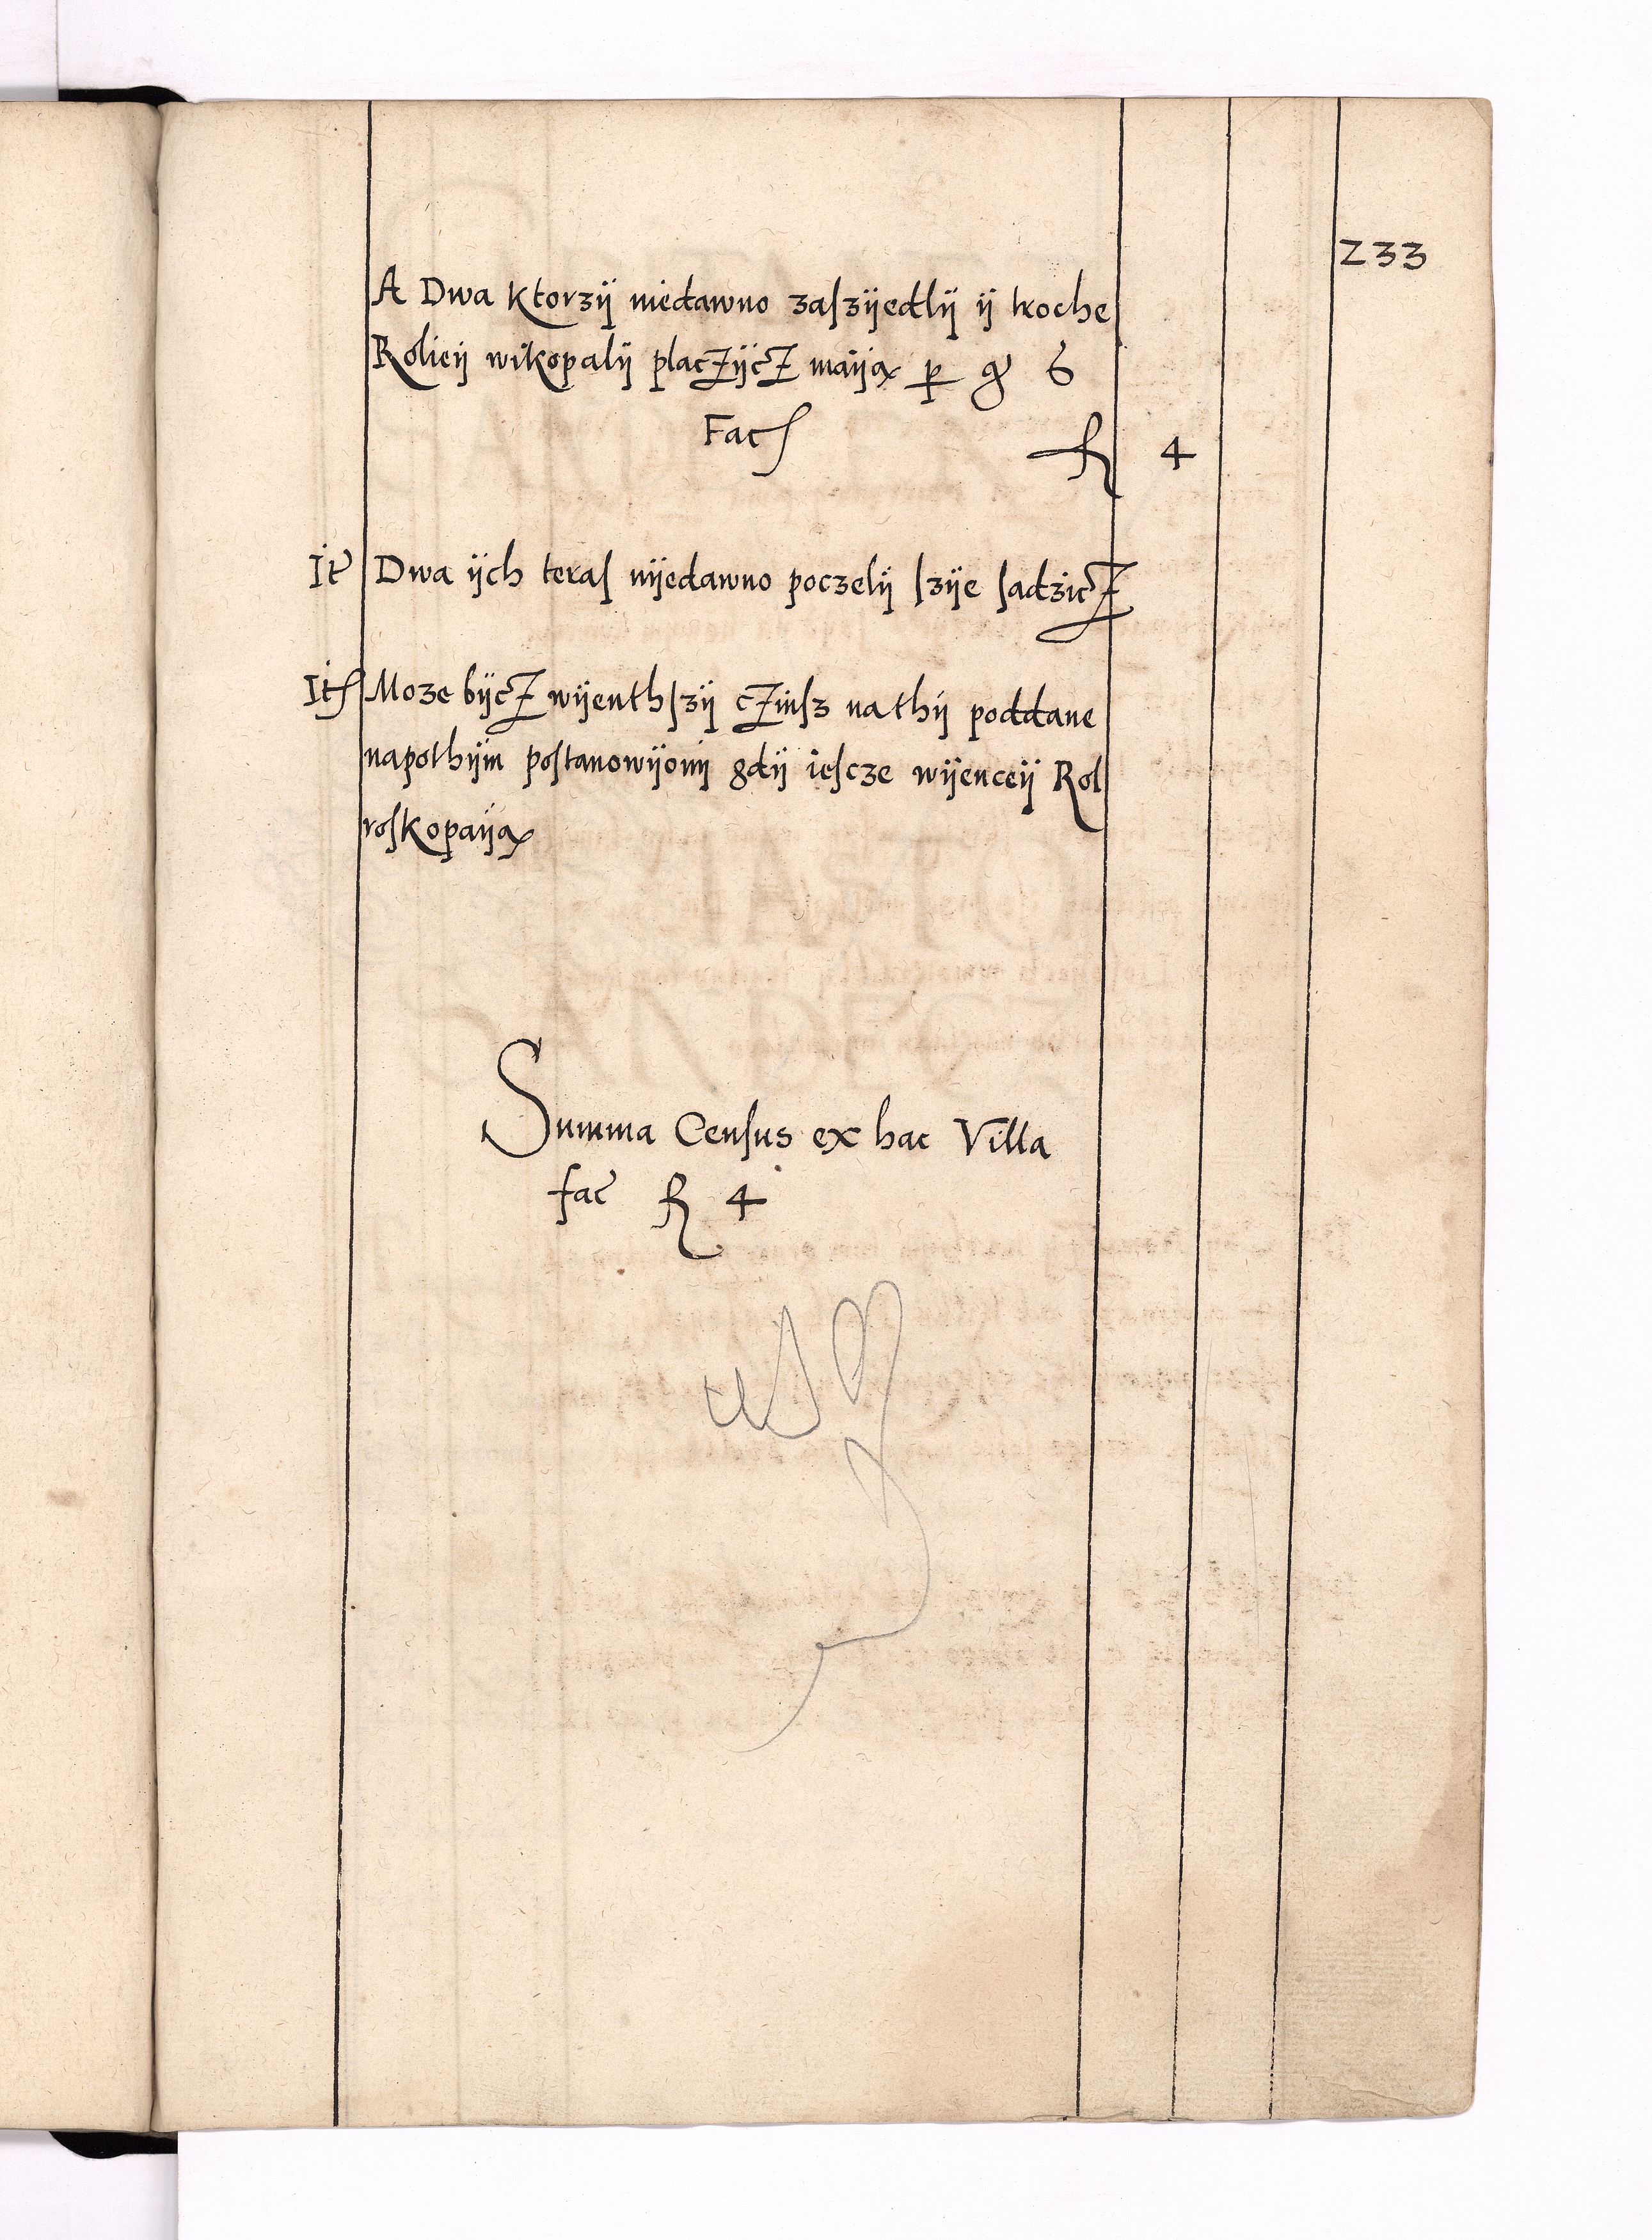 233
A Dwa Ktorzÿ niedawno zaſzÿedlÿ ÿ troche
Rolieÿ wikopalÿ placzÿcz maÿą p̱ g 6
Fac
fl 4
It Dwa ÿch teraſ nÿedawno poczelÿ ſzÿe ſadzicz
It Moze bÿcz wÿenthſzÿ czinſz nathÿ poddane
napothÿm poſtanowÿonÿ gdÿ ieſcze wÿenceÿ Rol
roſkopaÿą
Summa Cenſus ex hac Villa
fac fl 4